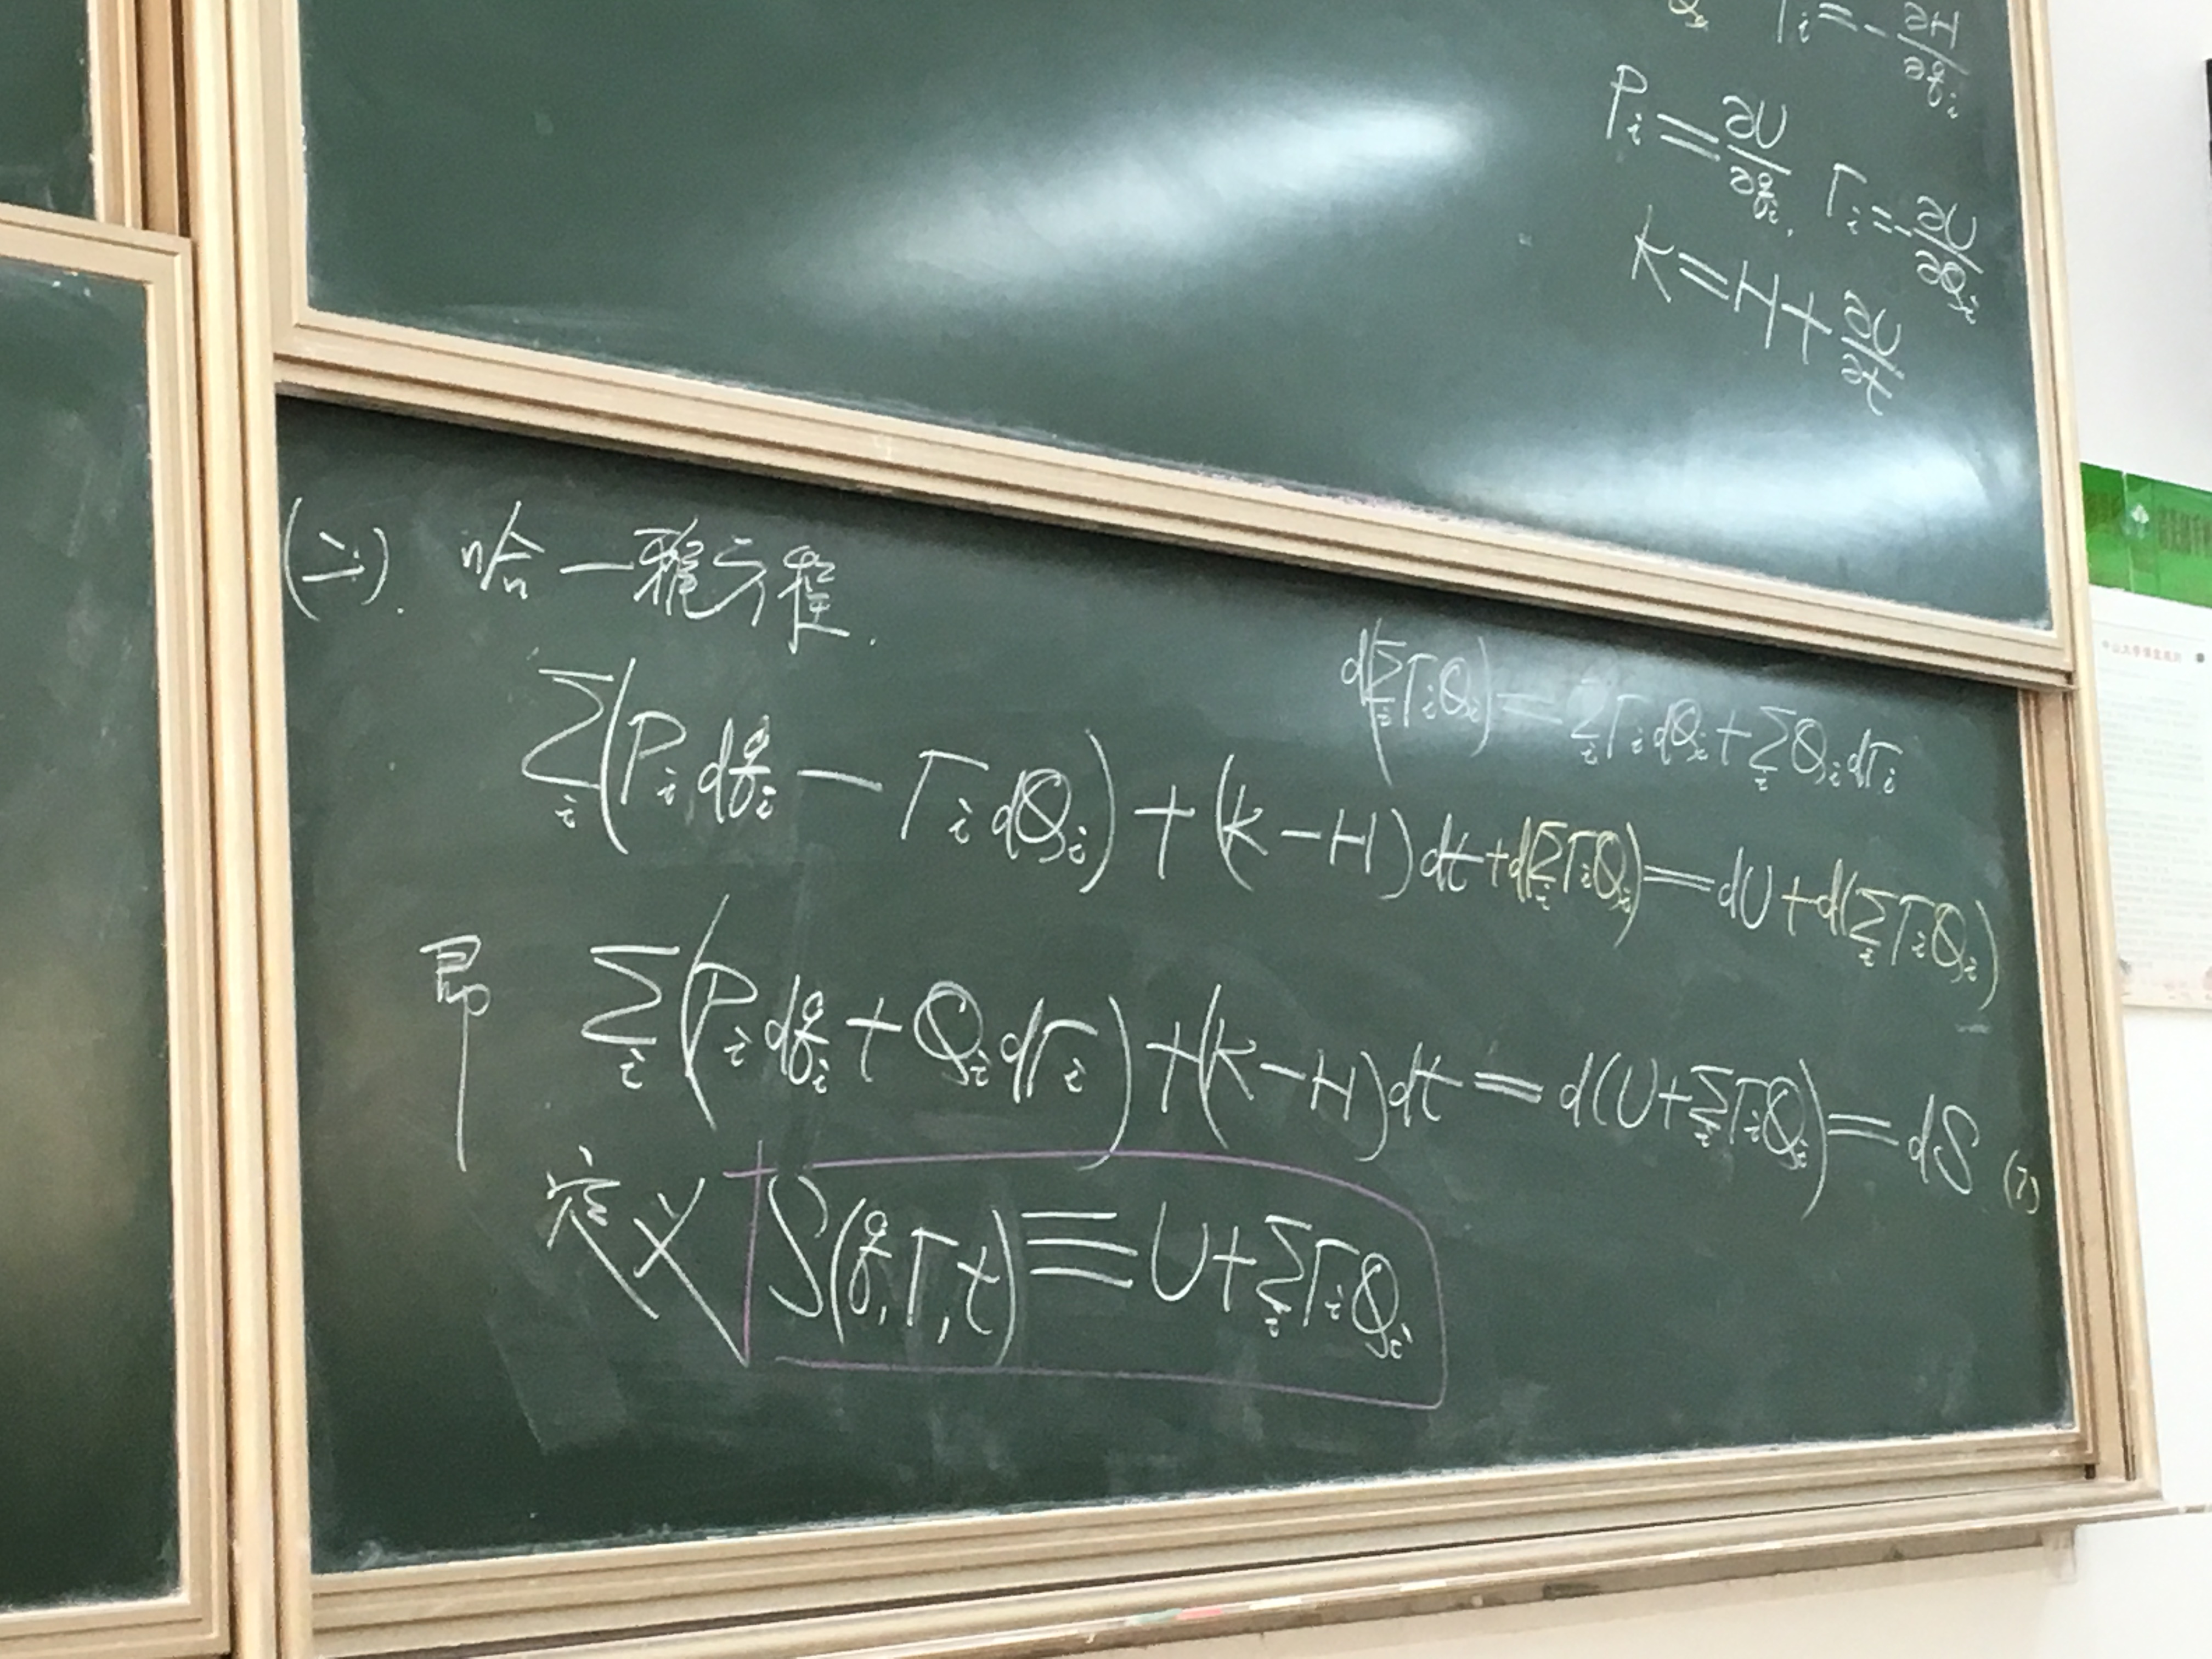 Γᵢ = -∂H/∂qᵢ
Pᵢ = ∂U/∂qᵢ, Γᵢ = -∂U/∂Qᵢ
K = H + ∂U/∂t
(二). 哈一雅方程.
d(∑ᵢ ΓᵢQᵢ) = ∑ᵢ Γᵢ dQᵢ + ∑ᵢ Qᵢ dΓᵢ
∑ᵢ (Pᵢ dqᵢ - Γᵢ dQᵢ) + (K - H) dt + d(∑ᵢ ΓᵢQᵢ) = dU + d(∑ᵢ ΓᵢQᵢ)
即 ∑ᵢ (Pᵢ dqᵢ + Qᵢ dΓᵢ) + (K - H) dt = d(U + ∑ᵢ ΓᵢQᵢ) = dS (7)
定义 S(q, Γ, t) ≡ U + ∑ᵢ ΓᵢQᵢ